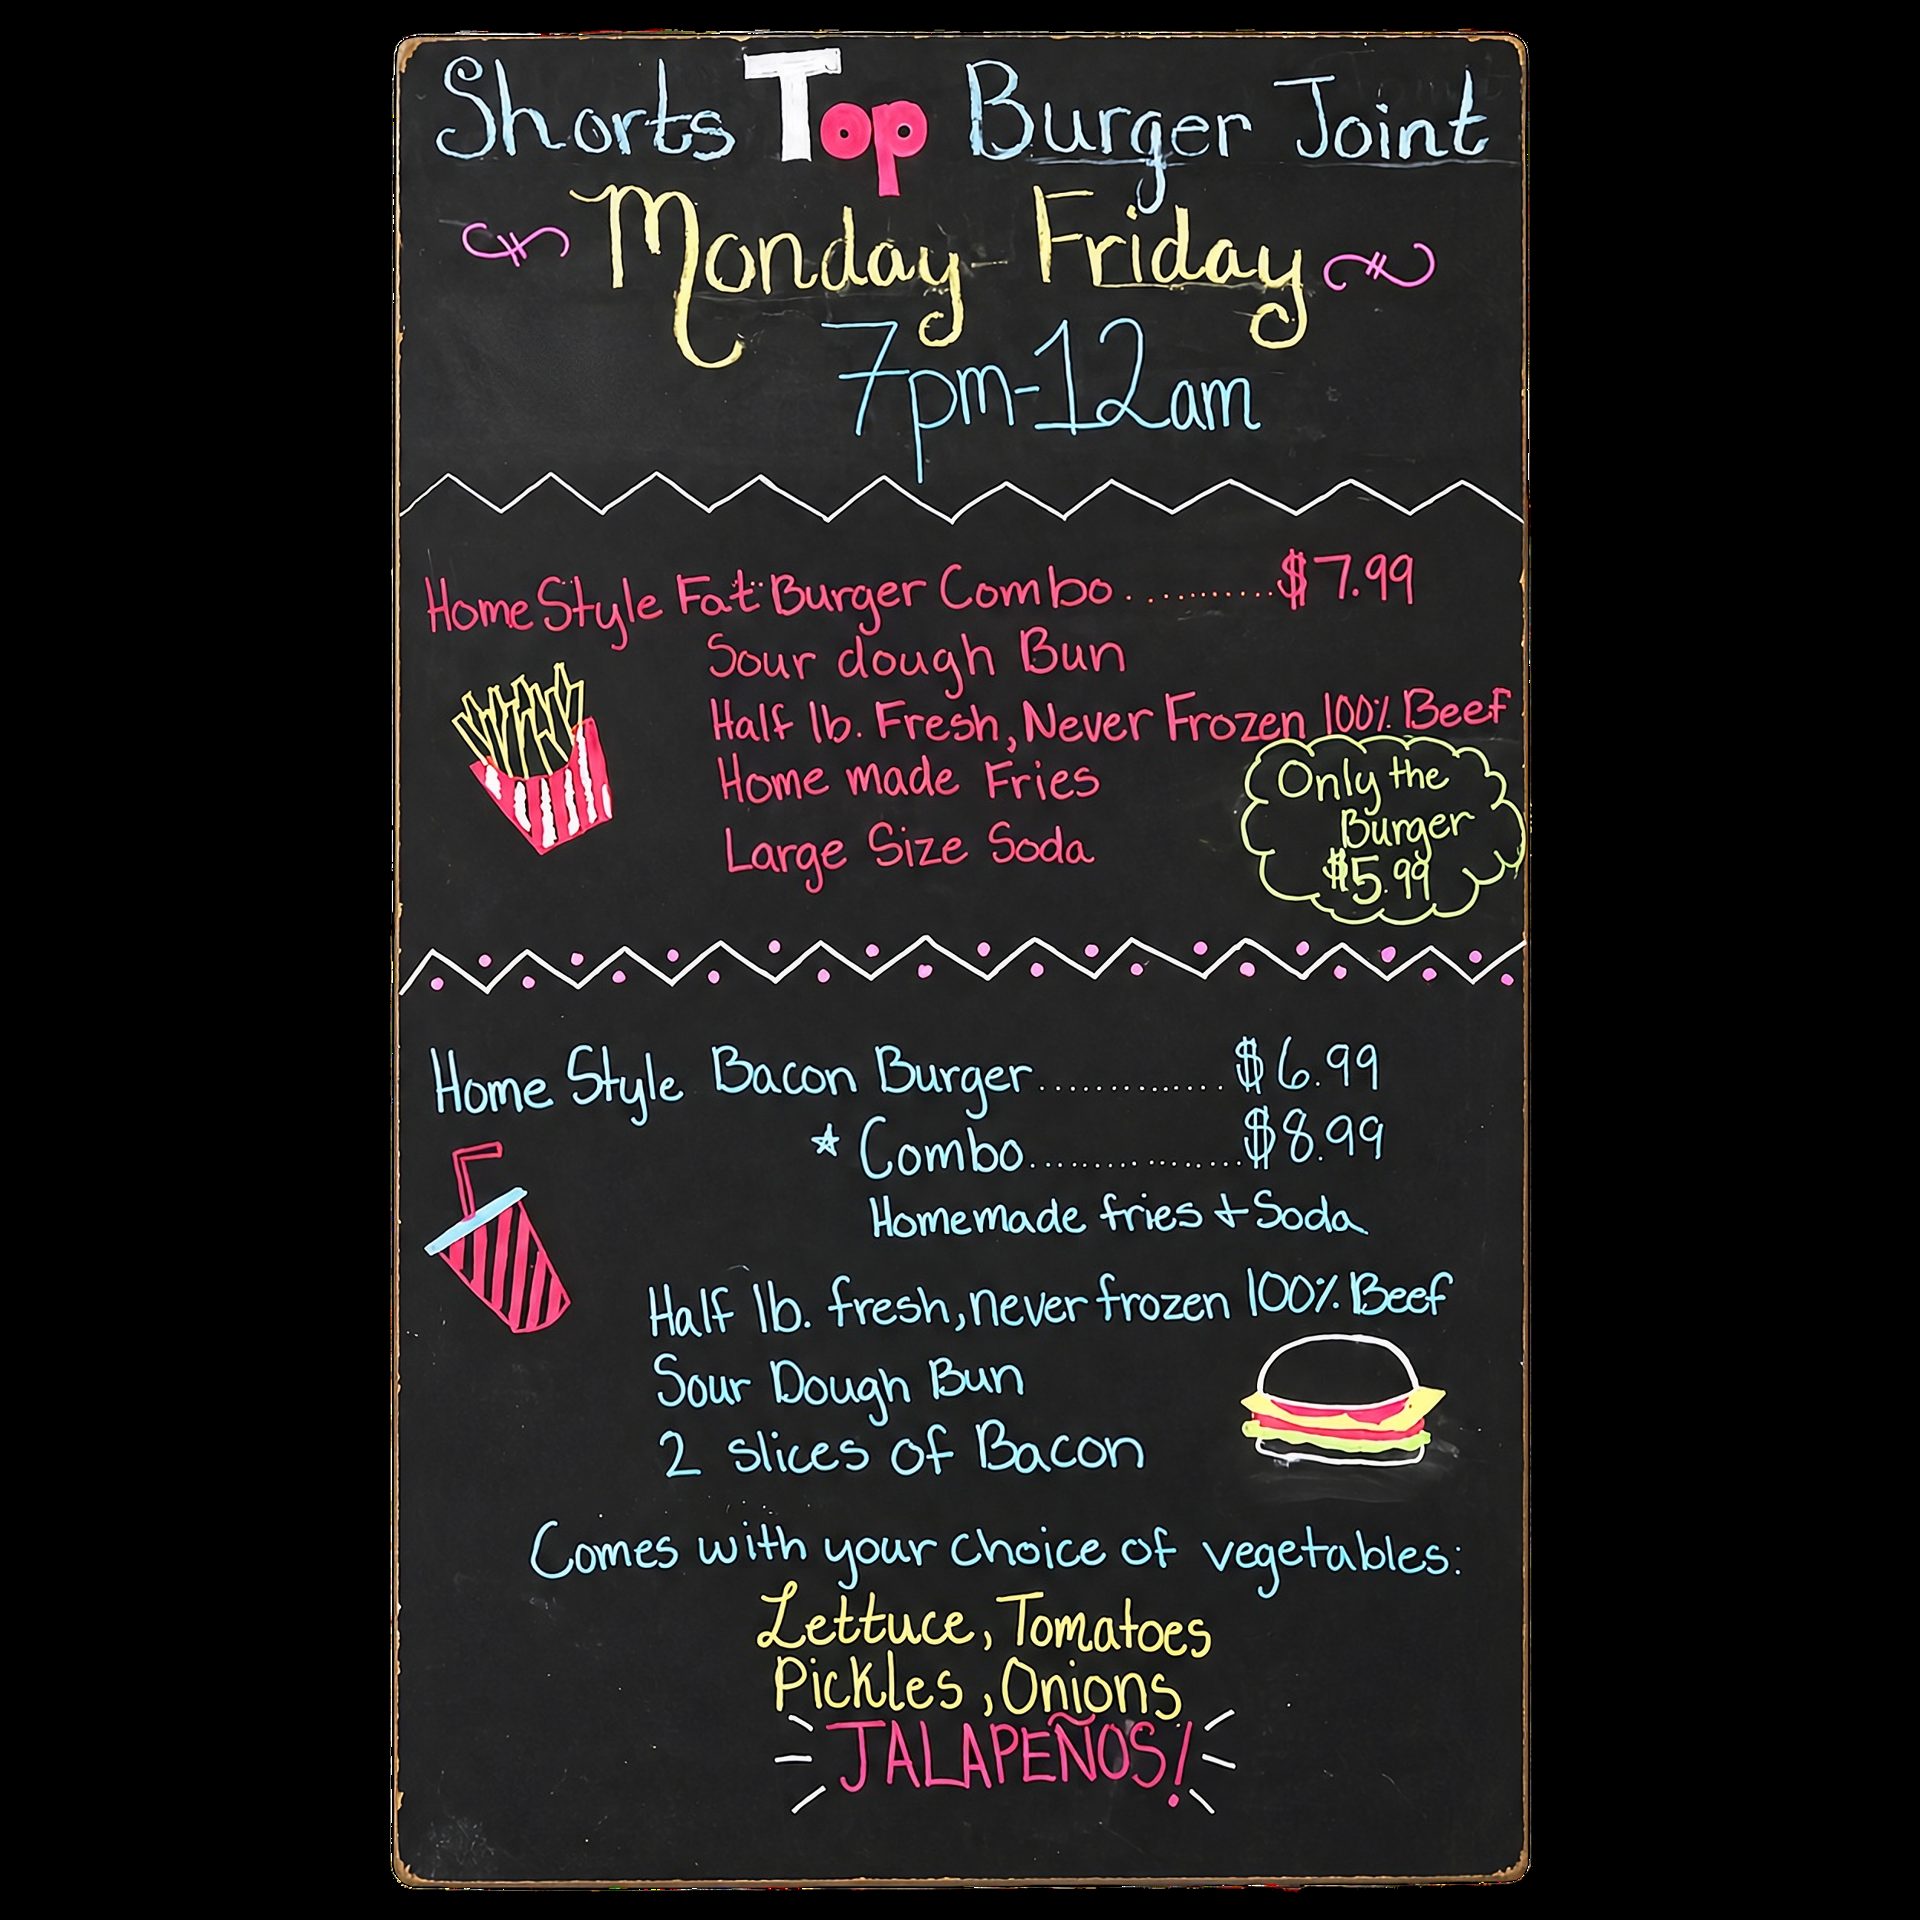 Shorts Top Burger Joint
Monday - Friday
7pm-12am
Home Style Fat Burger Combo ............ $7.99
Sour dough Bun
Half lb. Fresh, Never Frozen 100% Beef
Home made Fries
Large Size Soda
Only the
Burger
$5.99
Home Style Bacon Burger .............. $6.99
* Combo .................. $8.99
Homemade fries + Soda
Half lb. fresh, never frozen 100% Beef
Sour Dough Bun
2 slices of Bacon
Comes with your choice of vegetables:
Lettuce, Tomatoes
Pickles, Onions
JALAPEÑOS!